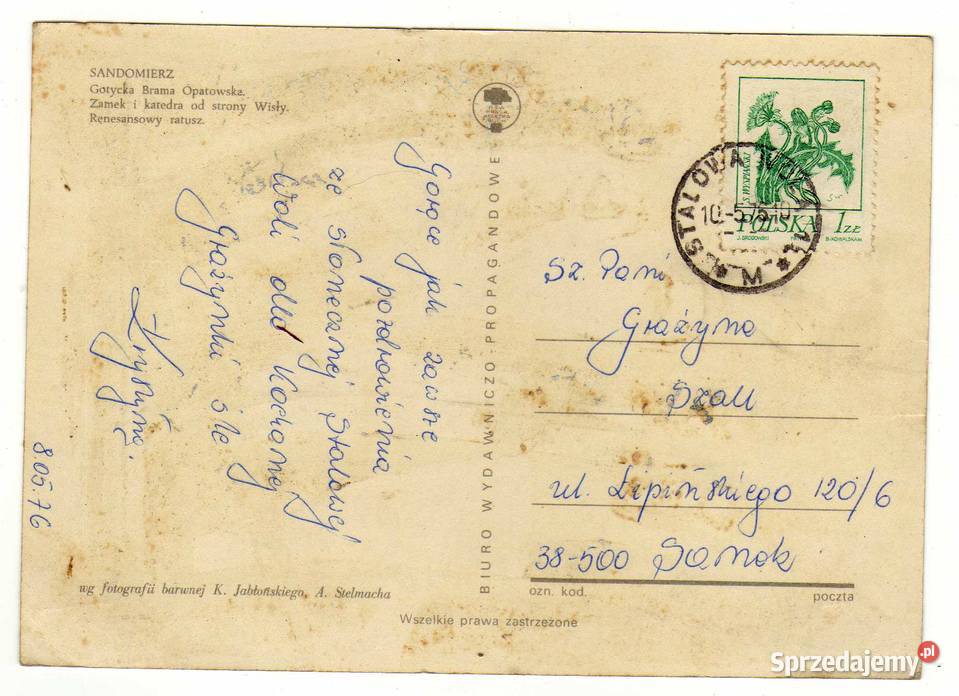 SANDOMIERZ
Gotycka Brama Opatowska.
Zamek i katedra od strony Wisły.
Renesansowy ratusz.
Gorące jak zawsze
pozdrowienia
ze słonecznej Stalowej
Woli dla Kochanej
Grażynki śle
Krystyna.
8.05.76
wg fotografii barwnej K. Jabłońskiego, A. Stelmacha
BIURO WYDAWNICZO-PROPAGANDOWE
Wszelkie prawa zastrzeżone
S. WYSPIAŃSKI
POLSKA 1 ZŁ
STALOWA WOLA 1
10.-5.76.10
Sz. Pani
Grażyna
Szall
ul. Lipińskiego 120/6
38-500 Sanok
ozn. kod.
poczta
Sprzedajemy.pl